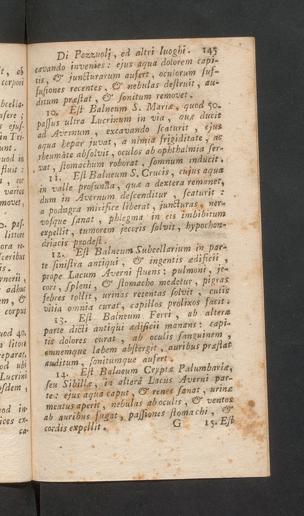 Di Pozzuolj, ed altri luoghi. 145
cavando invenies: ejus aqua dolorem capi-
tis, & juncturarum aufert, oculorum suf-
fusiones recentes, & nebulas destruit, au-
ditum præstat, & sonitum removet.
10. Est Balneum S. Mariæ, quod 50.
passus ultra Lucrinum in via, quæ ducit
ad Avernum, excavando scaturit, ejus
aqua hepar juvat, a nimia frigiditate, ac
rheumate absolvit, oculos ab ophthalmia ser-
vat, stomachum roborat, somnum inducit.
11. Est Balneum S. Crucis, cujus aqua
in valle profunda, qua a dextera remanet,
dum in Avernum descenditur, scaturit:
a podagra mirifice liberat, juncturas, ner-
vosque sanat, phlegma in eis imbibitum
expellit, tumorem jecoris solvit, hypochon-
driacis prodest.
12. Est Balneum Subcellarium in par-
te sinistra antiqui, & ingentis ædificii,
prope Lacum Averni fluens: pulmoni, je-
cori, spleni, & stomacho medetur, pigras
febres tollit, urinas retentas solvit, cutis
vitia omnia curat, capillos prolixos facit.
13. Est Balneum Ferri, ab altera
parte dicti antiqui ædificii manans: capi-
tis dolores curat, ab oculis sanguinem,
omnemque labem abstergit, auribus præstat
auditum, sonitumque aufert.
14. Est Balneum Cryptæ Palumbariæ,
seu Sibillæ, in altera Lacus Averni par-
te: ejus aqua caput, & renes sanat, urinæ
meatus aperit, nebulas ab oculis, & ventos
ab auribus fugat, passiones stomachi, &
cordis expellit.
G 15. Est